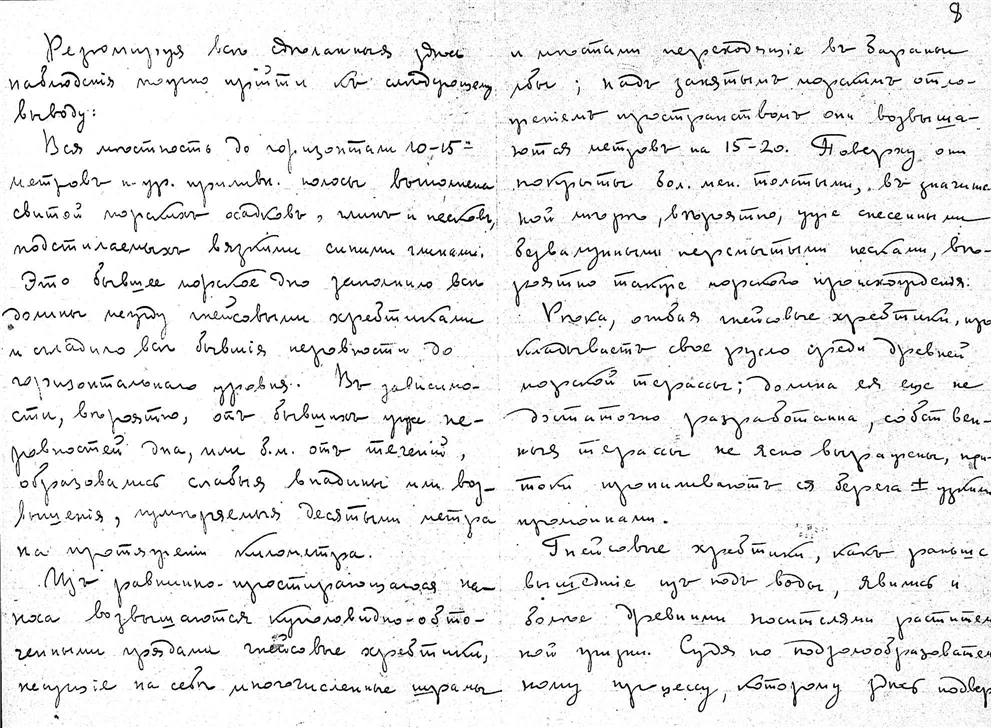 8
Резюмируя всѣ сдѣланныя здѣсь
наблюденія можно прійти къ слѣдующему
выводу:
Вся мѣстность до горизонтали 10-15=
метровъ н. ур. приливн. полосы выполнена
свитой морскихъ осадковъ, глинъ и песковъ,
подстилаемыхъ вязкими синими глинами.
Это бывшее морское дно заполнило всѣ
долины между гнейсовыми хребтиками
и сгладило всѣ бывшія неровности до
горизонтальнаго уровня. Въ зависимо-
сти, вѣроятно, отъ бывшихъ уже не-
ровностей дна, или б.м. отъ теченій,
образовались слабыя впадины или воз-
вышенія, измѣряемыя десятыми метра
на протяженіи километра.
Изъ равнинно-простирающагося на-
носа возвышаются куполовидно-обто-
ченными грядами гнейсовые хребтики,
несущіе на себѣ многочисленные шрамы
и мѣстами переходящіе въ бараньи
лбы; надъ занятымъ морскимъ отло-
женіемъ пространствомъ они возвыша-
ются метровъ на 15-20. Поверху они
покрыты бол. мен. толстыми, въ значитель
ной мѣрѣ, вѣроятно, уже снесенными
безвалунными перемытыми песками, вѣ-
роятно также морского происхожденія.
Рѣка, огибая гнейсовые хребтики, про
кладываетъ свое русло среди древней
морской террасы; долина ея еще не
достаточно разработанна, собствен-
ныя террасы не ясно выражены, при-
токи пропиливаютъ ея берега ± узкими
промоинами.
Гнейсовые хребтики, какъ раньше
вышедшіе изъ подъ воды, явились и
болѣе древними носителями раститель
ной жизни. Судя по подзолообразователь
ному процессу, которому здѣсь подвер